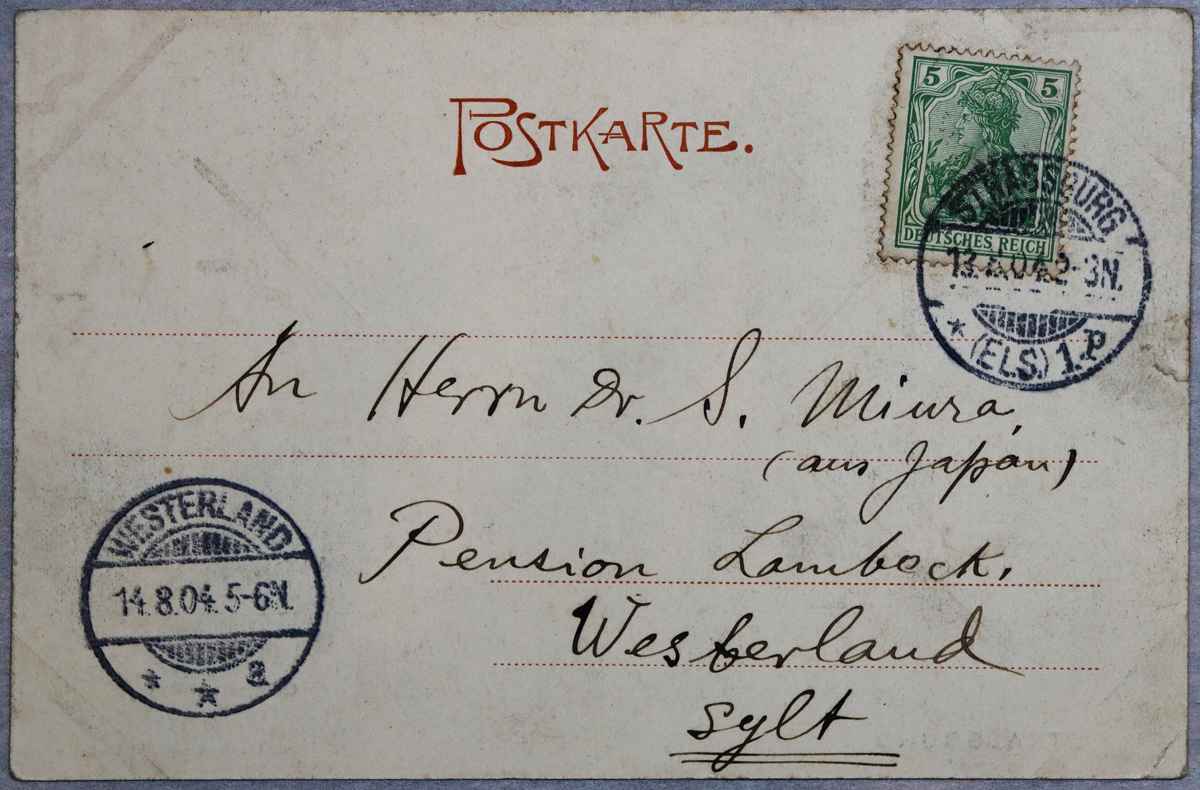 POSTKARTE.
5 5
DEUTSCHES REICH
STRASSBURG
13.8.04.2-3N.
* (ELS.) 1.P
An Herrn Dr. S. Miura,
(aus Japan)
Pension Lambeck.
Westerland
Sylt
WESTERLAND
14.8.04.5-6N.
* * a